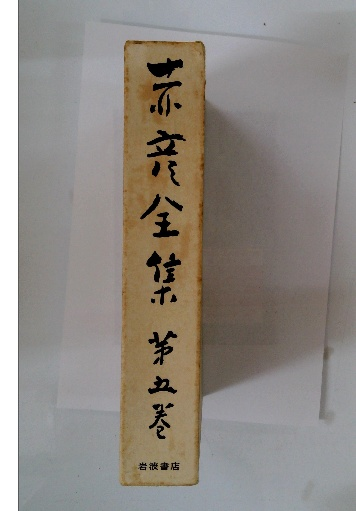 赤彦全集 第五巻
岩波書店